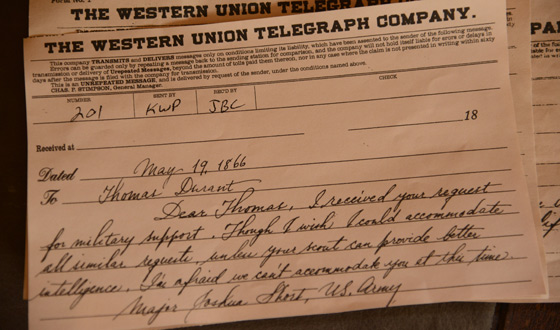 Form No. 1
THE WESTERN UNION TELEGRAPH COMPANY.
THE WESTERN UNION TELEGRAPH COMPANY.
This company TRANSMITS and DELIVERS messages only on conditions limiting its liability, which have been assented to by the sender of the following message.
Errors can be guarded only by repeating a message back to the sending station for comparison, and the company will not hold itself liable for errors or delays in
transmission or delivery of Unrepeated Messages, beyond the amount of tolls paid thereon, nor in any case where the claim is not presented in writing within sixty
days after the message is filed with the company for transmission.
This is an UNREPEATED MESSAGE, and is delivered by request of the sender, under the conditions named above.
CHAS. P. STIMPSON, General Manager.
NUMBER SENT BY REC'D BY CHECK
201 KWP JBC
18
Received at
Dated May 19, 1866
To Thomas Durant
Dear Thomas, I received your request
for military support. Though I wish I could accommodate
all similar requests, unless your scout can provide better
intelligence. I'm afraid we can't accommodate you at this time
Major Joshua Short, U.S. Army